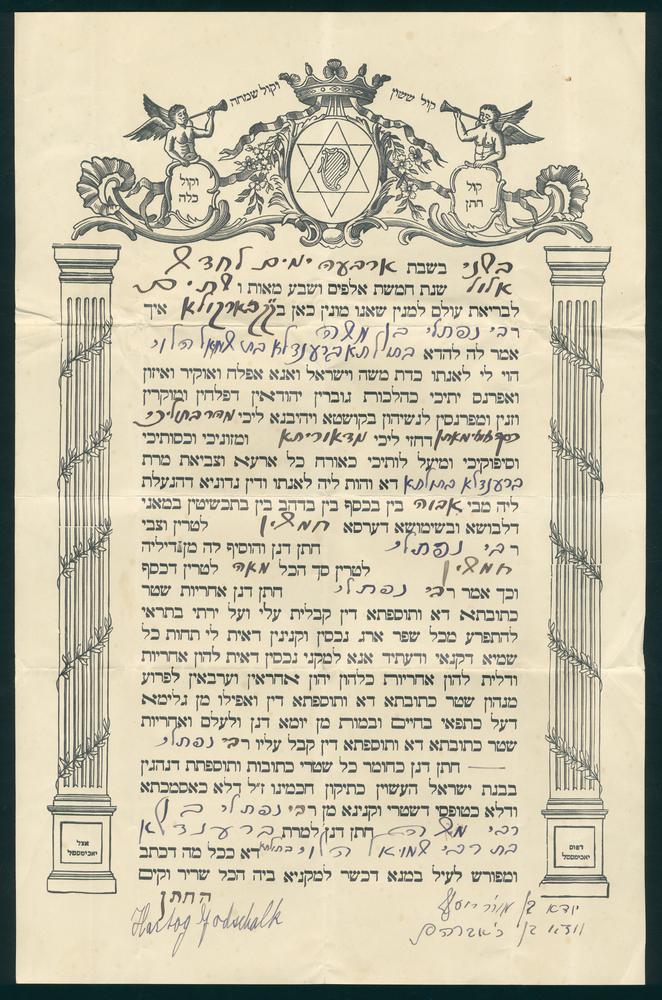 וקול שמחה
קול ששון
וקול
כלה
קול
חתן
בשני בשבת ארבעה ימים לחדש
אלול שנת חמשת אלפים ושבע מאות ו שתים
לבריאת עולם למנין שאנו מונין כאן בק״ק איך
רבי נפתלי בן משה
אמר לה להדא בתולתא ברענדלא בת שמואל הלוי
הוי לי לאנתו כדת משה וישראל ואנא אפלח ואוקיר ואיזון
ואפרנס יתיכי כהלכות גוברין יהודאין דפלחין ומוקרין
וזנין ומפרנסין לנשיהון בקושטא ויהיבנא ליכי מהר בתוליכי
כסף זוזי מאתן דחזי ליכי מדאוריתא ומזוניכי וכסותיכי
וסיפוקיכי ומיעל לותיכי כאורח כל ארעא וצביאת מרת
ברענדלא בתולתא דא והות ליה לאנתו ודין נדוניא דהנעלת
ליה מבי אבוה בין בכסף בין בדהב בין בתכשיטין במאני
דלבושא ובשימושא דערסא חמשין לטרין וצבי
רבי נפתלי חתן דנן והוסיף לה מן דיליה
חמשין לטרין סך הכל מאה לטרין דכסף
וכך אמר רבי נפתלי חתן דנן אחריות שטר
כתובתא דא ותוספתא דין קבלית עלי ועל ירתי בתראי
להתפרע מכל שפר ארג נכסין וקנינין דאית לי תחות כל
שמיא דקנאי ודעתיד אנא למקני נכסין דאית להון אחריות
ודלית להון אחריות כלהון יהון אחראין וערבאין לפרוע
מנהון שטר כתובתא דא ותוספתא דין ואפילו מן גלימא
דעל כתפאי בחיים ובמות מן יומא דנן ולעלם ואחריות
שטר כתובתא דא ותוספתא דין קבל עליו רבי נפתלי
חתן דנן כחומר כל שטרי כתובות ותוספתת דנהגין
בבנת ישראל העשוין כתיקון חכמינו ז״ל דלא כאסמכתא
ודלא כטופסי דשטרי וקנינא מן רבי נפתלי בן
רבי משה חתן דנן למרת ברענדלא
בת רבי שמואל הלוי בתולתא דא ככל מה דכתב
ומפורש לעיל במנא דכשר למקניא ביה הכל שריר וקים
החתן
Hartog Godschalk
אצל
יאכימסטל
דפוס
יאכימסטל